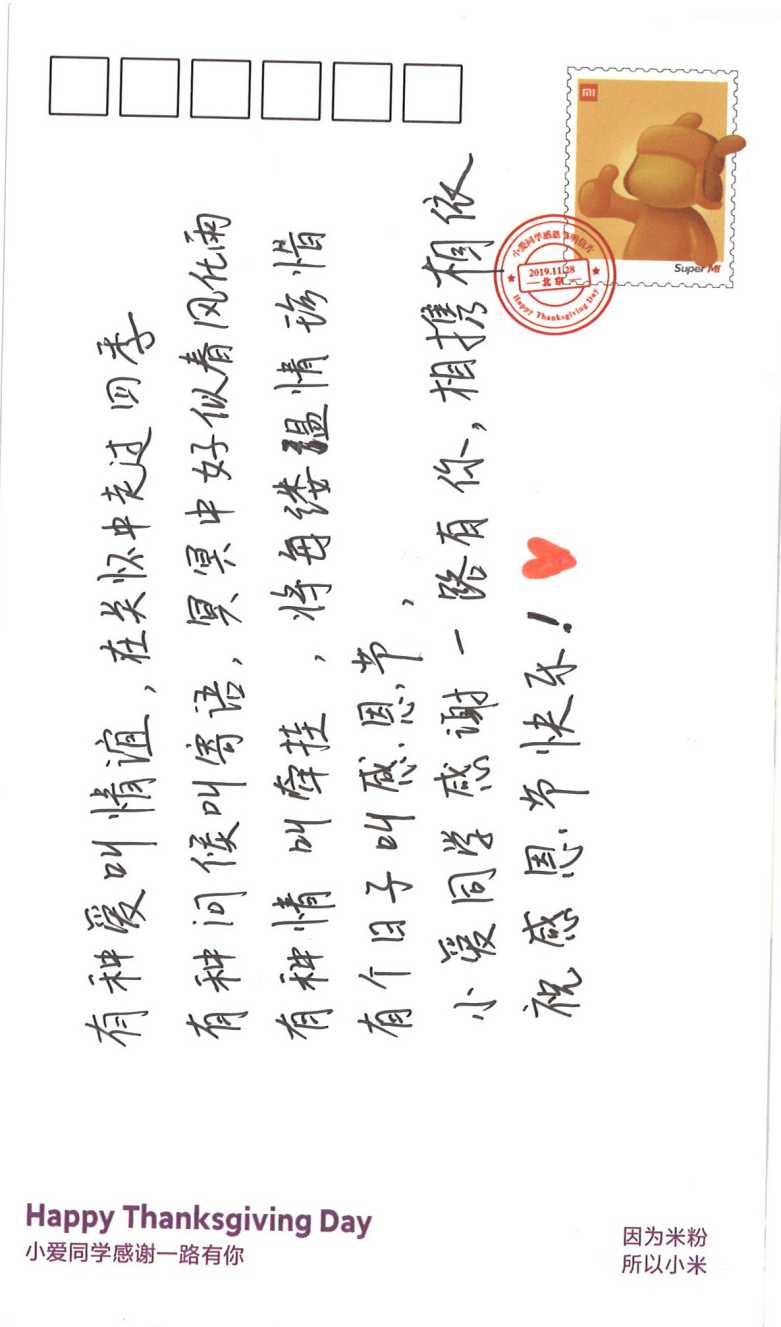 MI
Super MI
小爱同学感恩节明信片
2019.11.28
北京
Happy Thanksgiving Day
有种爱叫情谊,在关怀中走过四季
有种问候叫寄语,冥冥中好似春风化雨
有种情叫牵挂,将每缕温情珍惜
有个日子叫感恩节,
小爱同学感谢一路有你,相携相依
祝感恩节快乐!
Happy Thanksgiving Day
小爱同学感谢一路有你
因为米粉
所以小米